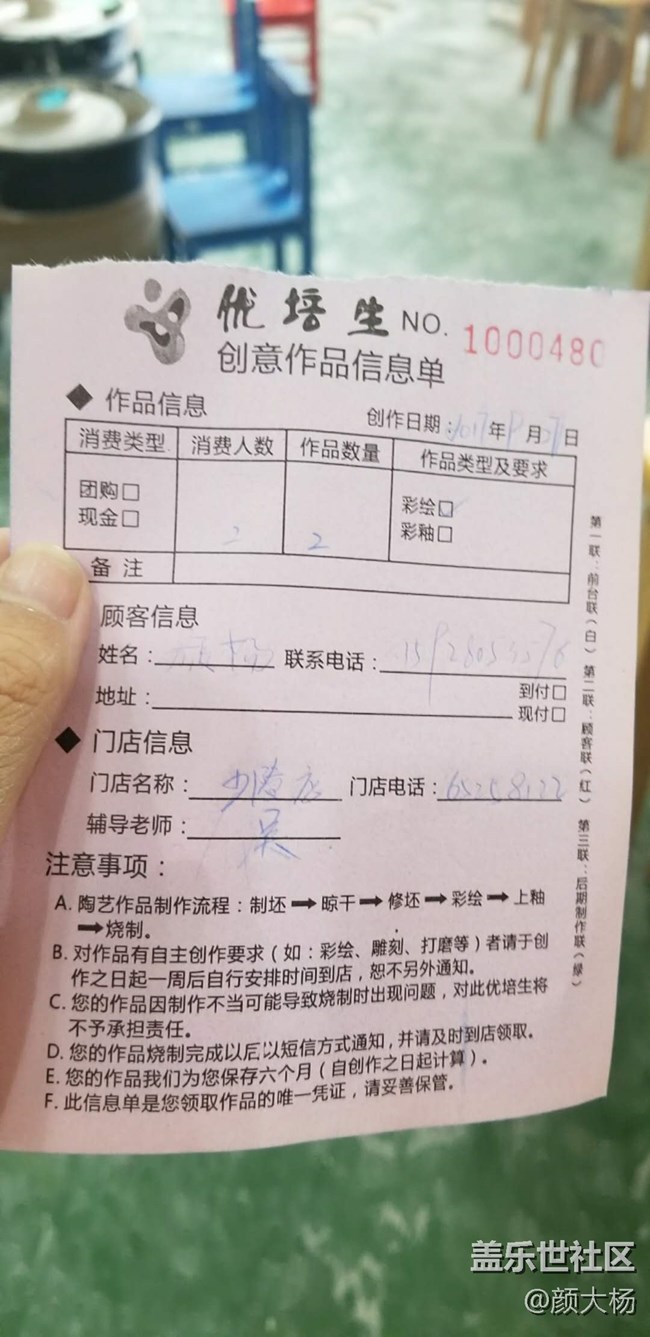 优培生 NO. 1000480
创意作品信息单
◆ 作品信息 创作日期：2017年9月 日
消费类型 消费人数 作品数量 作品类型及要求
团购□ 彩绘□
现金□ 二 2 彩釉□
备注
顾客信息
姓名： 联系电话：
地址： 到付□
现付□
◆ 门店信息
门店名称： 店 门店电话：
辅导老师：吴
注意事项：
A. 陶艺作品制作流程：制坯➡晾干➡修坯➡彩绘➡上釉
➡烧制。
B. 对作品有自主创作要求（如：彩绘、雕刻、打磨等）者请于创
作之日起一周后自行安排时间到店，恕不另外通知。
C. 您的作品因制作不当可能导致烧制时出现问题，对此优培生将
不予承担责任。
D. 您的作品烧制完成以后以短信方式通知，并请及时到店领取。
E. 您的作品我们为您保存六个月（自创作之日起计算）。
F. 此信息单是您领取作品的唯一凭证，请妥善保管。
第一联：前台联（白） 第二联：顾客联（红） 第三联：后期制作联（绿）
盖乐世社区
@颜大杨